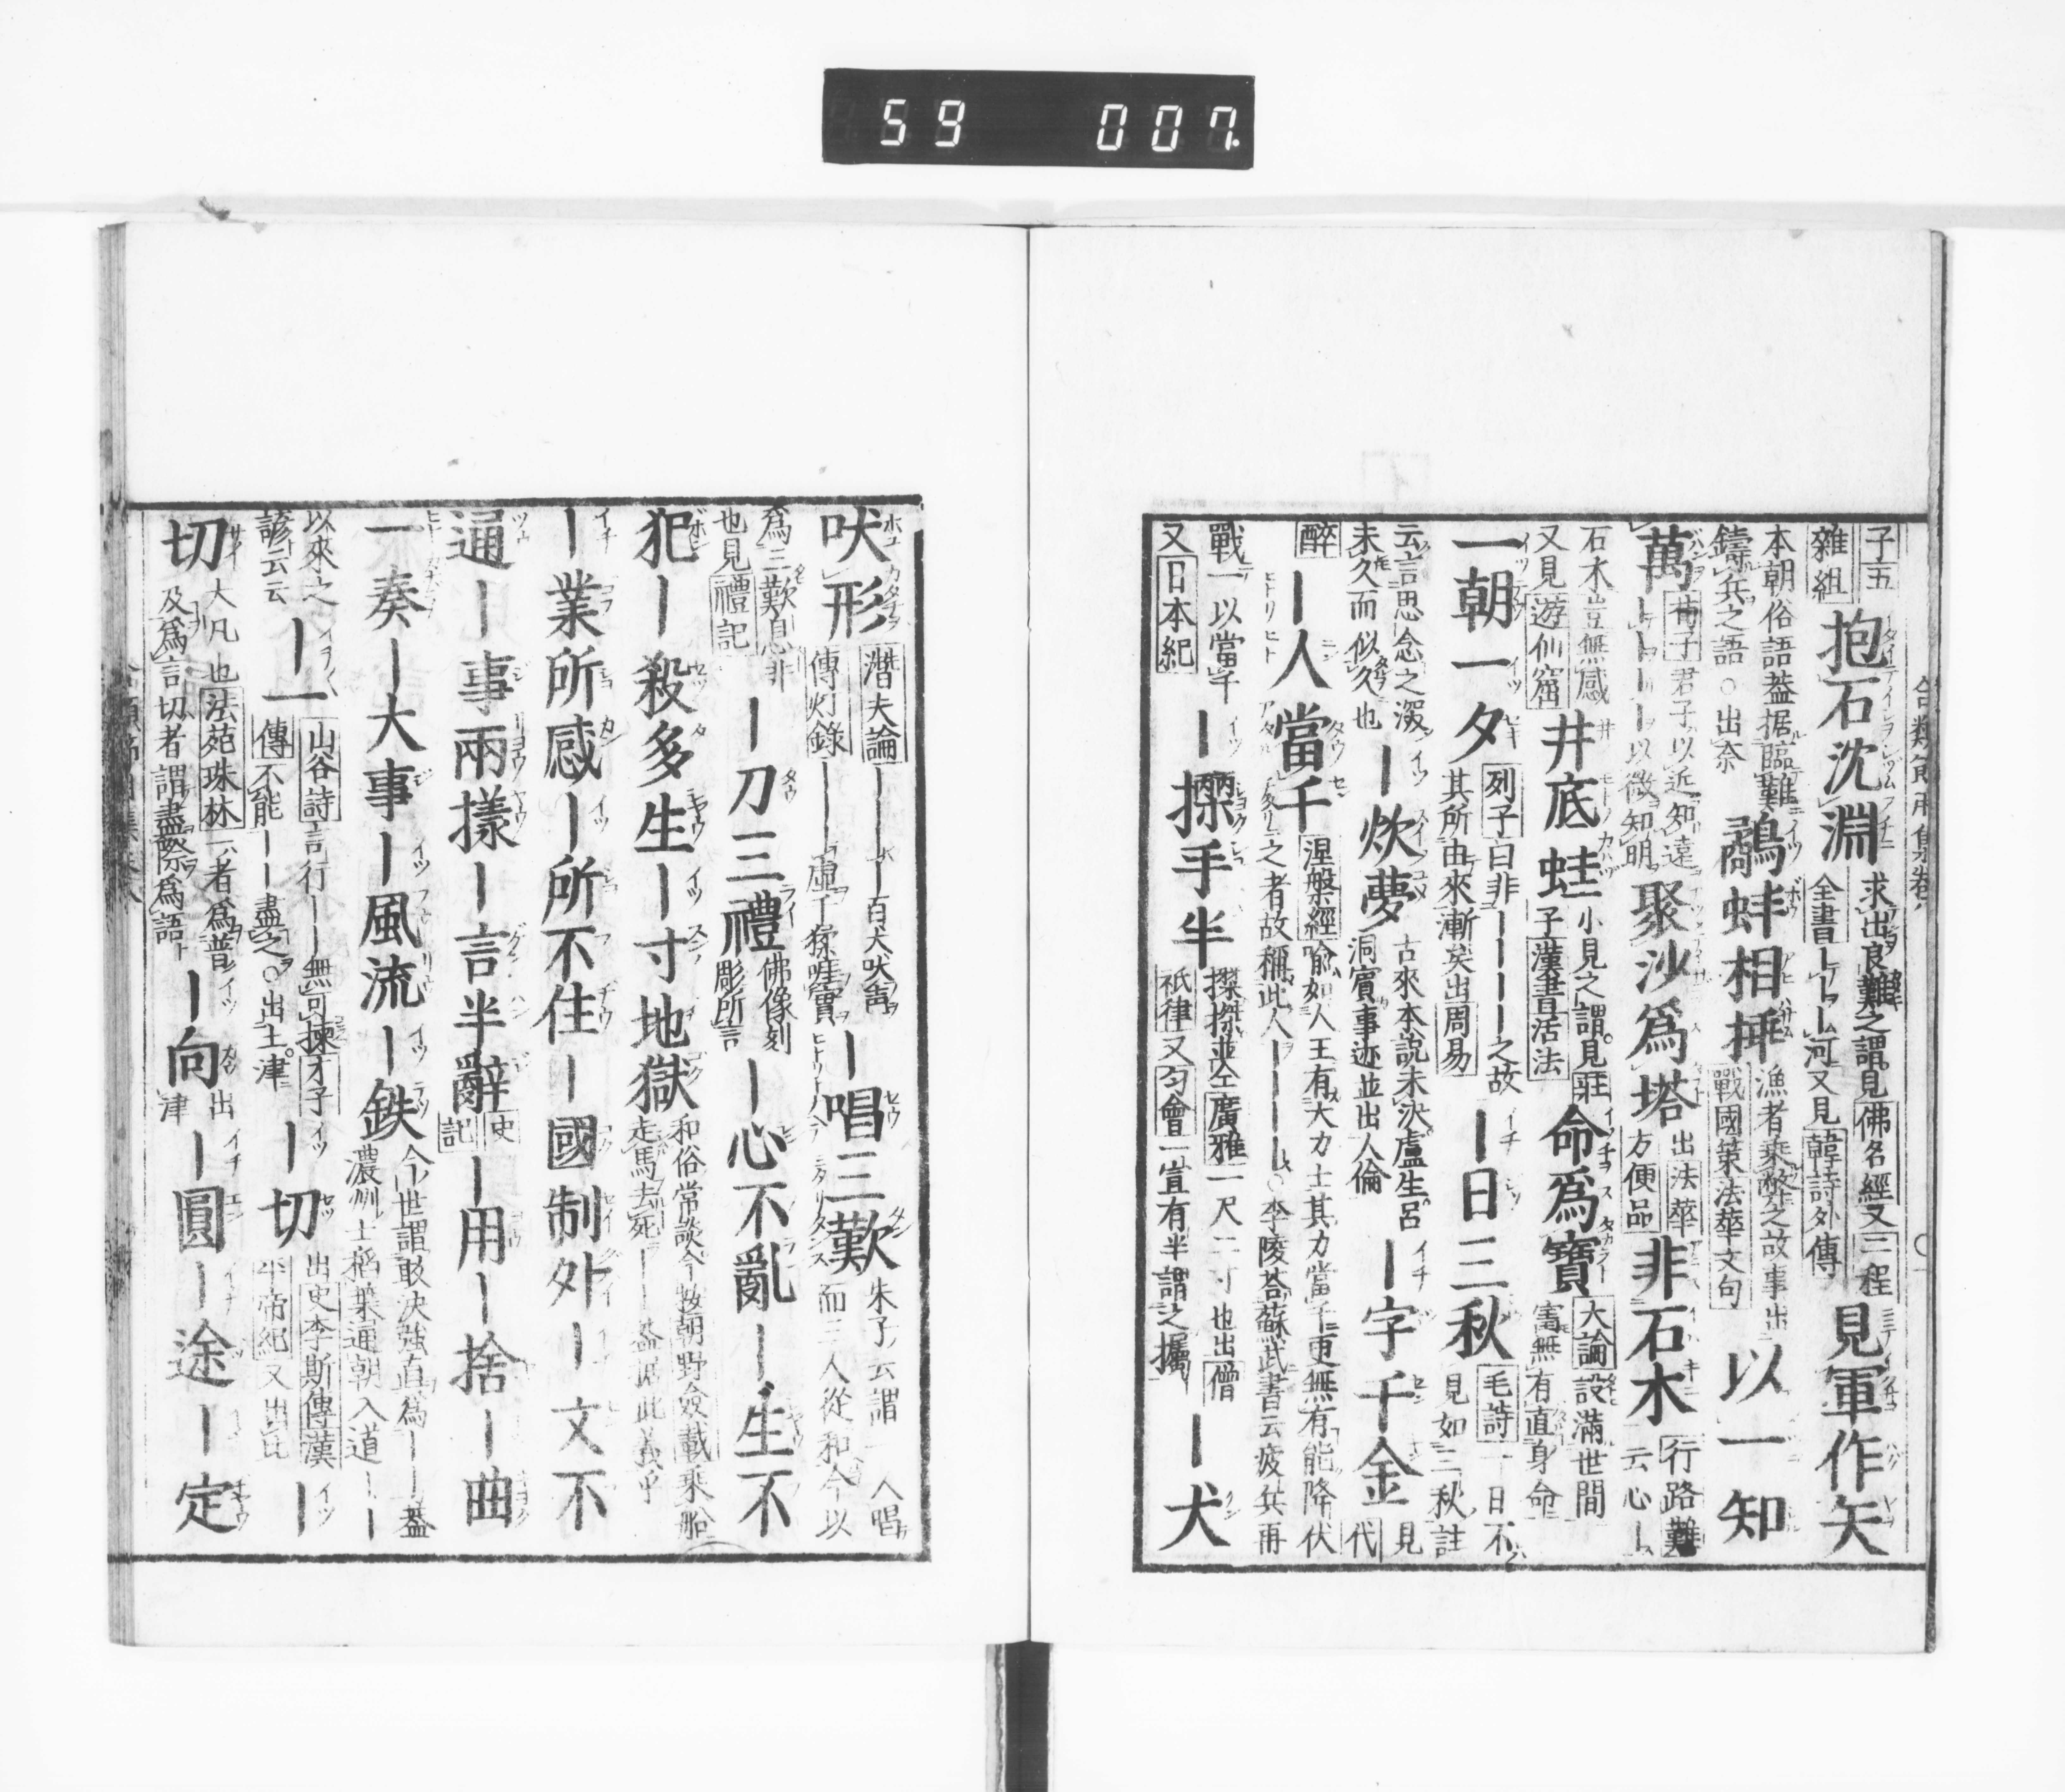 59 007
子五
雜組
抱石沈淵
求出良難之謂見佛名經又二程
全書ーーー河又見韓詩外傳
見軍作矢
本朝俗語葢据臨難
鑄兵之語○出奈
鷸蚌相挿
漁者乘弊之故事出
戰國策法華文句
以一知
萬
荀子君子以近知遠
ーーーー以微知明
聚沙爲塔
出法華
方便品
非石木
行路難
云心ー
石木豈無感
又見遊仙窟
井底蛙
小見之謂見莊
子漢書活法
命爲寶
大論設滿世間
寳無有直身命
一朝一夕
列子曰非ーーーー之故
其所由來漸矣出周易
ー日三秋
毛詩一日不
見如三秋註
云言思念之深
未久而似久也
ー炊夢
古來本說未決盧生呂
洞賓事迹並出人倫
ー字千金
見
代
醉
ー人當千
涅槃經喩如人王有大力士其力當千更無有能降伏
之者故稱此人ーーーー○李陵荅蘇武書云疲兵再
戰一以當千
又日本紀
ー搩手半
搩搩並仝廣雅一尺二寸也出僧
祇律又匀會一宜有半謂之攦
ー犬
吠形
潛夫論ーーーー百犬吠声
傳灯錄ーーー虛千猱啀實
ー唱三歎
朱子云謂一人唱
而三人從和今以
爲三歎息非
也見禮記
ー刀三禮
佛像刻
彫所言
ー心不亂ー生不
犯ー殺多生ー寸地獄
和俗常談今按朝野僉載乘船
走馬去死ーー葢据此義乎
ー業所感ー所不住ー國制外ー文不
通ー事兩樣ー言半辭
史
記
ー用ー捨ー曲
一奏ー大事ー風流ー鉄
今世謂敢決強直爲ーー葢
濃州士稻葉通朝入道ーー
以來之
諺云云
ー一
山谷詩言行ーー無可揀才子
傳不能ーー盡之○出土津
ー切
出史李斯傳漢
平帝紀又出比
ー
切
大凡也法苑珠林云者爲普
及爲言切者謂盡際爲語
ー向
出
津
ー圓ー途ー定